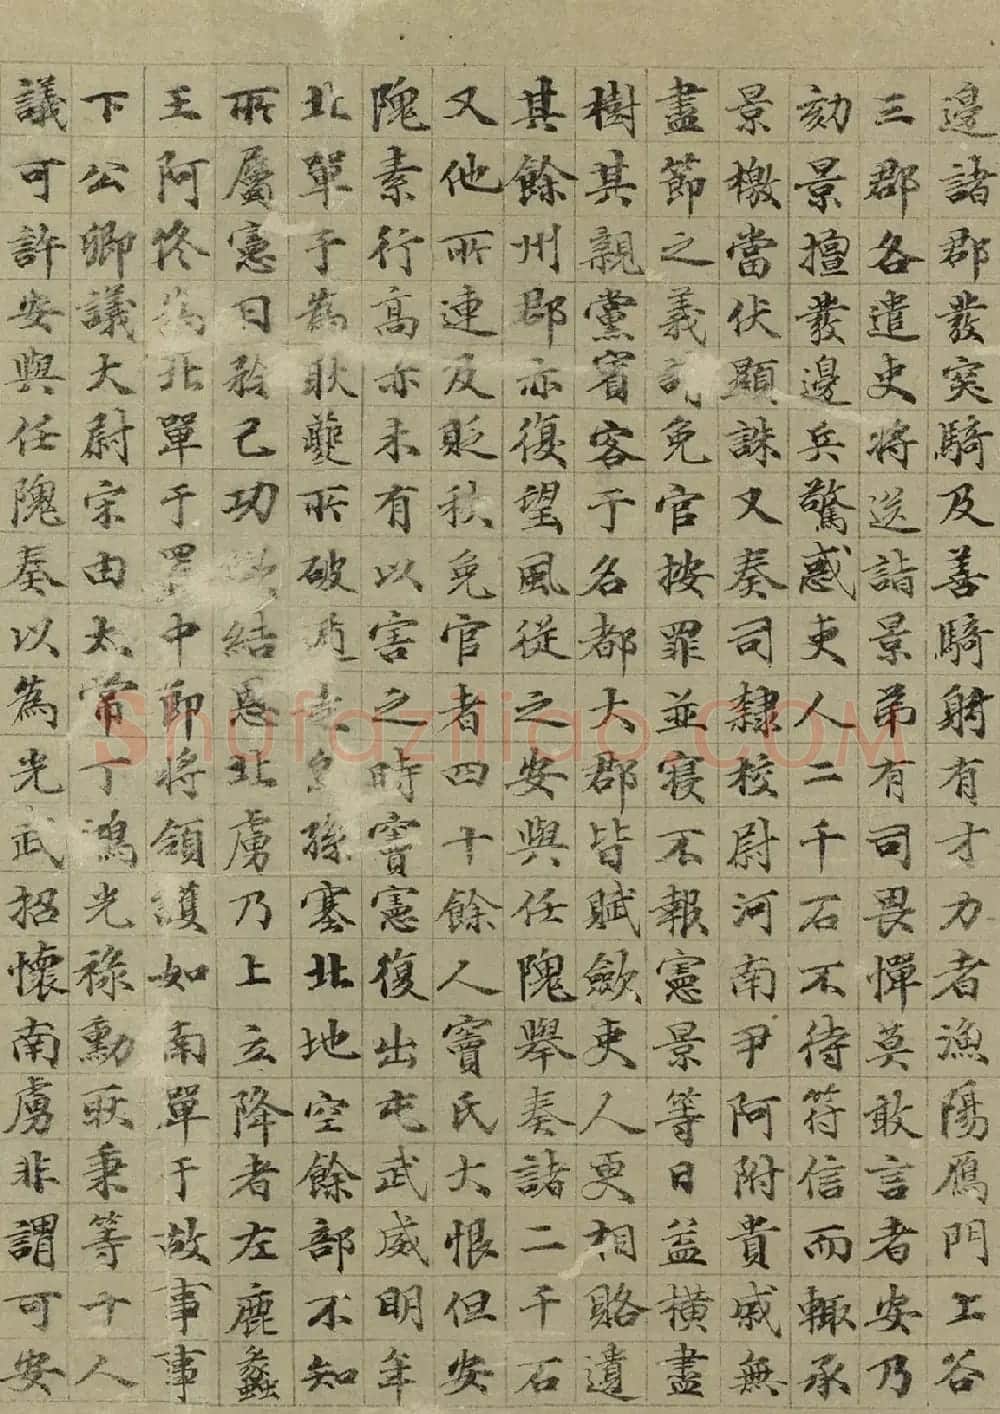 邊諸郡發突騎及善騎射有才力者漁陽鴈門上谷
三郡各遣吏將送詣景弟有司畏憚莫敢言者安乃
劾景擅發邊兵驚惑吏人二千石不待符信而輙承
景檄當伏顯誅又奏司隸校尉河南尹阿附貴戚無
盡節之義請免官按罪並寝不報憲景等日益橫盡
樹其親黨賓客于名都大郡皆賦斂吏人更相賂遺
其餘州郡亦復望風從之安與任隗舉奏諸二千石
又他所連及貶秩免官者四十餘人竇氏大恨但安
隗素行高亦未有以害之時竇憲復出屯武威明年
北單于為耿夔所破遁走烏孫塞北地空餘部不知
所屬憲日矜己功欲結恩北虜乃上立降者左鹿蠡
王阿佟為北單于置中郎将領護如南單于故事事
下公卿議大尉宋由太常丁鴻光祿勳耿秉等十人
議可許安與任隗奏以為光武招懷南虜非謂可安
Shufaziliao.COM